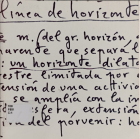 línea de horizonte
m. (del gr. horizōn,
parente que separa l
un horizonte dilat
estre limitada por
ensión de una activi
se amplía con la in
sfera, extensi
del porvenir: h